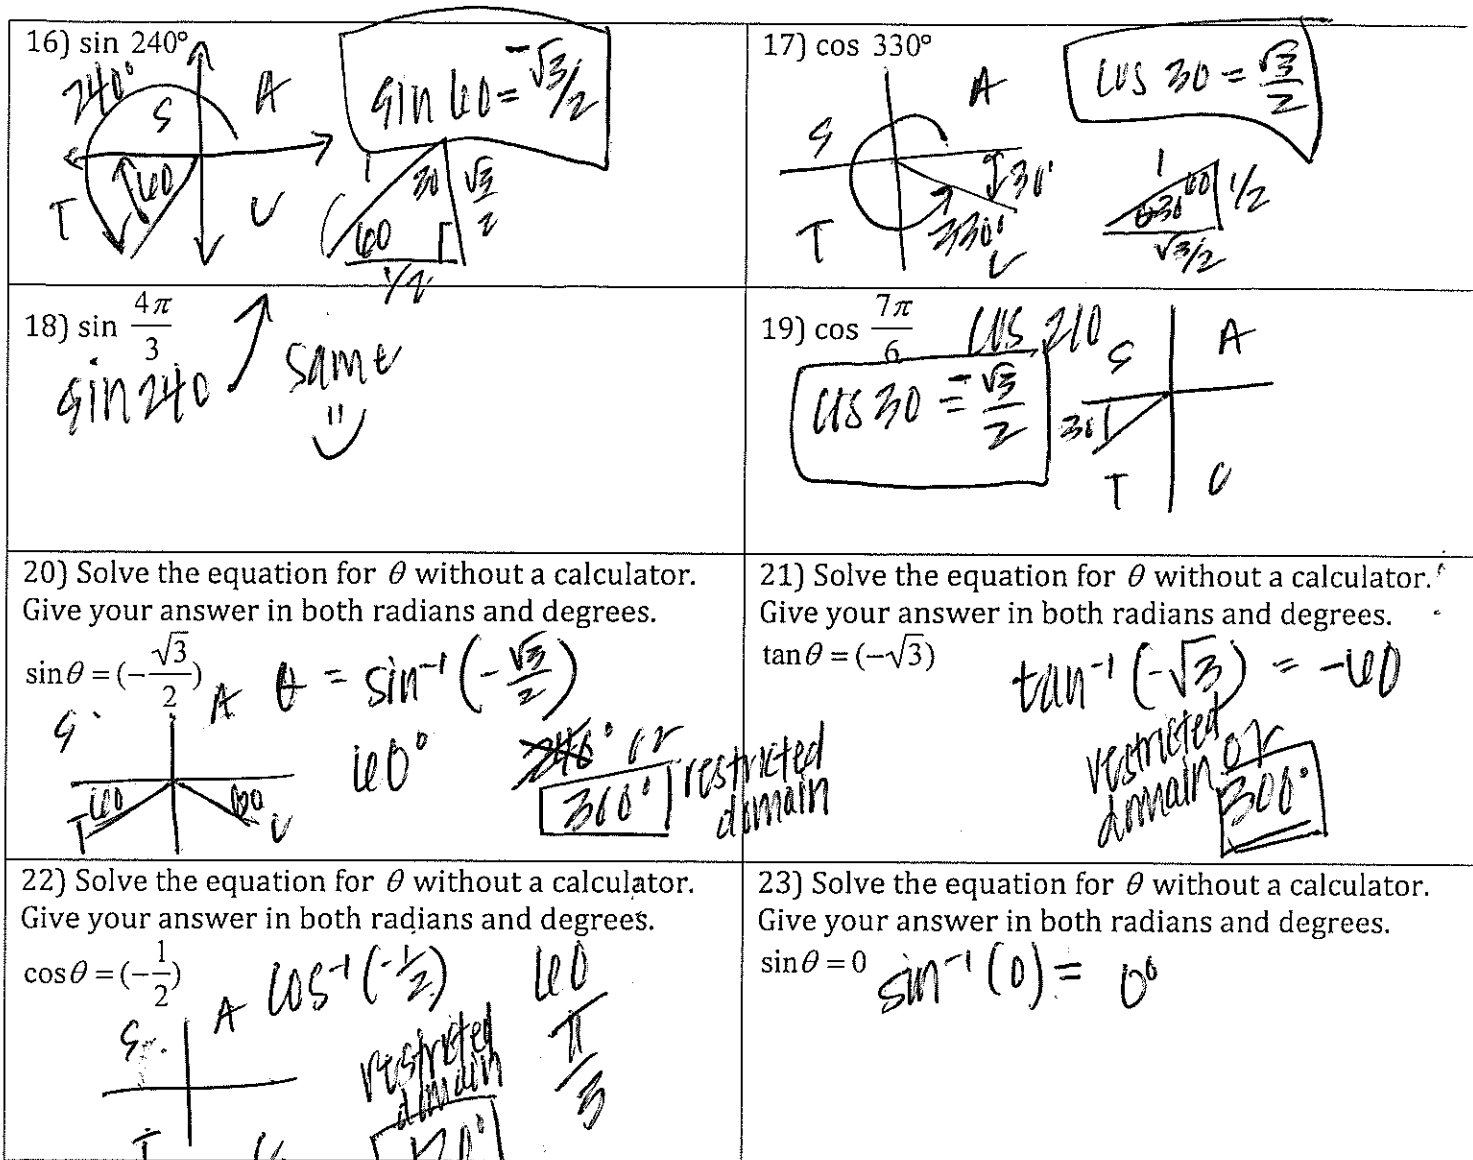 16) sin 240°
240°
S
A
T
C
60
sin 60 = -√3/2
1
30
√3/2
60
1/2
17) cos 330°
S
A
T
C
30°
330°
cos 30 = √3/2
1
60
θ30
1/2
√3/2
18) sin 4π/3
sin 240
same
19) cos 7π/6
cos 210
cos 30 = -√3/2
S
A
30
T
C
20) Solve the equation for θ without a calculator.
Give your answer in both radians and degrees.
sinθ = (-√3/2)
θ = sin⁻¹(-√3/2)
S
A
60°
240° or
300°
restricted
domain
60
60
T
C
21) Solve the equation for θ without a calculator.
Give your answer in both radians and degrees.
tanθ = (-√3)
tan⁻¹(-√3) = -60
restricted
domain
or
300°
22) Solve the equation for θ without a calculator.
Give your answer in both radians and degrees.
cosθ = (-1/2)
cos⁻¹(-1/2)
60
π/3
S
A
restricted
domain
120°
T
C
23) Solve the equation for θ without a calculator.
Give your answer in both radians and degrees.
sinθ = 0
sin⁻¹(0) = 0°